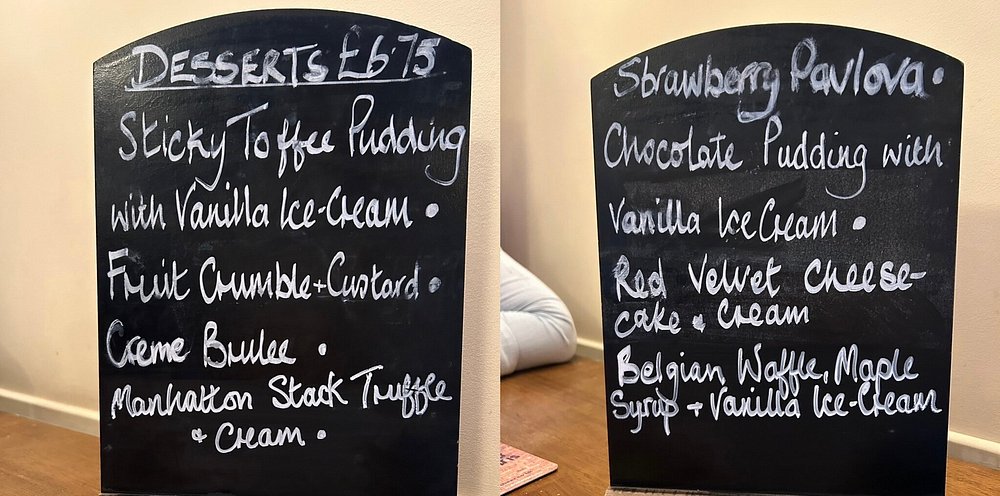 DESSERTS £6.75
Sticky Toffee Pudding
with Vanilla Ice-Cream •
Fruit Crumble + Custard •
Creme Brulee •
Manhatton Stack Truffle
+ Cream •
Strawberry Pavlova •
Chocolate Pudding with
Vanilla Ice Cream •
Red Velvet Cheese-
cake + Cream
Belgian Waffle, Maple
Syrup + Vanilla Ice-Cream